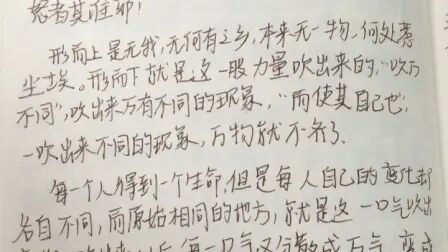 怒者其谁邪!
形而上是无我,无何有之乡,本来无一物,何处惹
尘埃。形而下就是这一股力量吹出来的,"吹万
不同",吹出来万有不同的现象,"而使其自己也",
一吹出来不同的现象,万物就不
每一个人得到一个生命,但是每人自己的变化却
各自不同,而原始相同的地方,就是这一口气吹出
每一口气又分散成万气